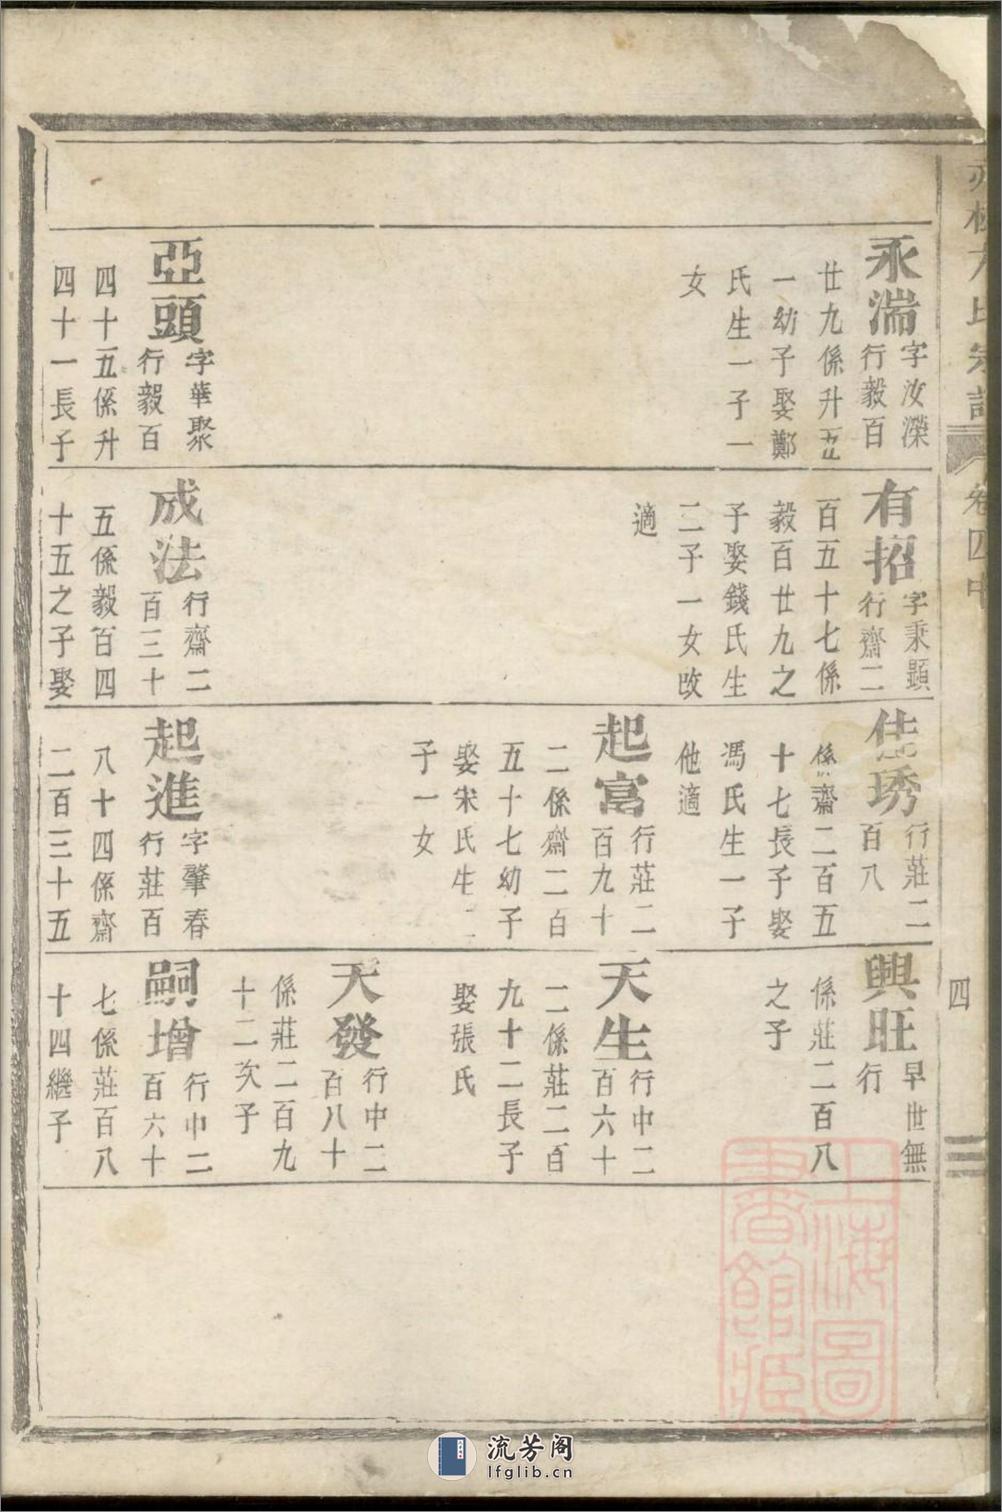 氏宗譜 卷四中 四
永湍 字汝濚
行毅百
廿九係升五
一幼子娶鄭
氏生一子一
女
亞頭 字華聚
行毅百
四十五係升
四十一長子
有招 字秉顯
行齋二
百五十七係
毅百廿九之
子娶錢氏生
二子一女改
適
成法 行齋二
百三十
五係毅百四
十五之子娶
佳琇 行莊二
百八
係齋二百五
十七長子娶
馮氏生一子
他適
起富 行莊二
百九十
二係齋二百
五十七幼子
娶宋氏生二
子一女
起進 字肇春
行莊百
八十四係齋
二百三十五
興旺 早世無
行
係莊二百八
之子
天生 行中二
百六十
二係莊二百
九十二長子
娶張氏
天發 行中二
百八十
係莊二百九
十二次子
嗣增 行中二
百六十
七係莊百八
十四繼子
上海圖
書館藏
流芳阁
lfglib.cn